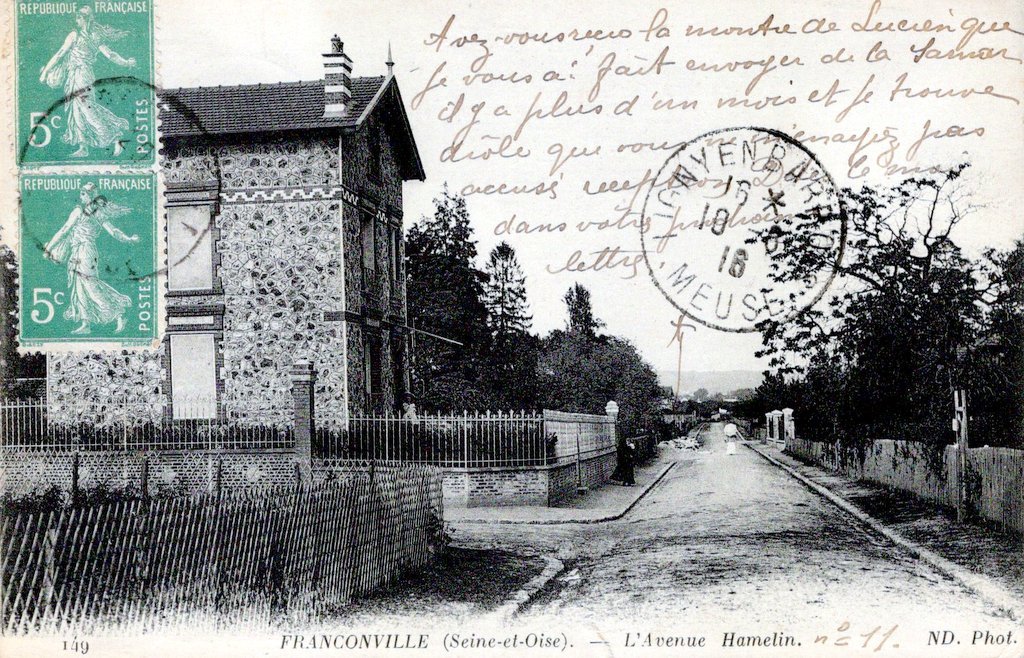 RÉPUBLIQUE FRANÇAISE
5c POSTES
RÉPUBLIQUE FRANÇAISE
5c
POSTES
Avez-vous reçu la montre de Lucien que
je vous ai fait envoyer de la Samar
il y a plus d'un mois et je trouve
drôle que vous ne m'enayez pas
accusé reception. le
dans votre prochaine
lettre.
LIGNY EN BARROIS
15
10
16
MEUSE
149
FRANCONVILLE (Seine-et-Oise). — L'Avenue Hamelin. nº 11.
ND. Phot.